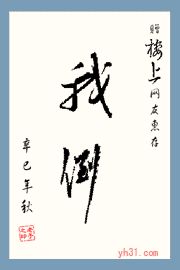 赠楼上网友惠存
我倒
辛巳年秋
yh31.com